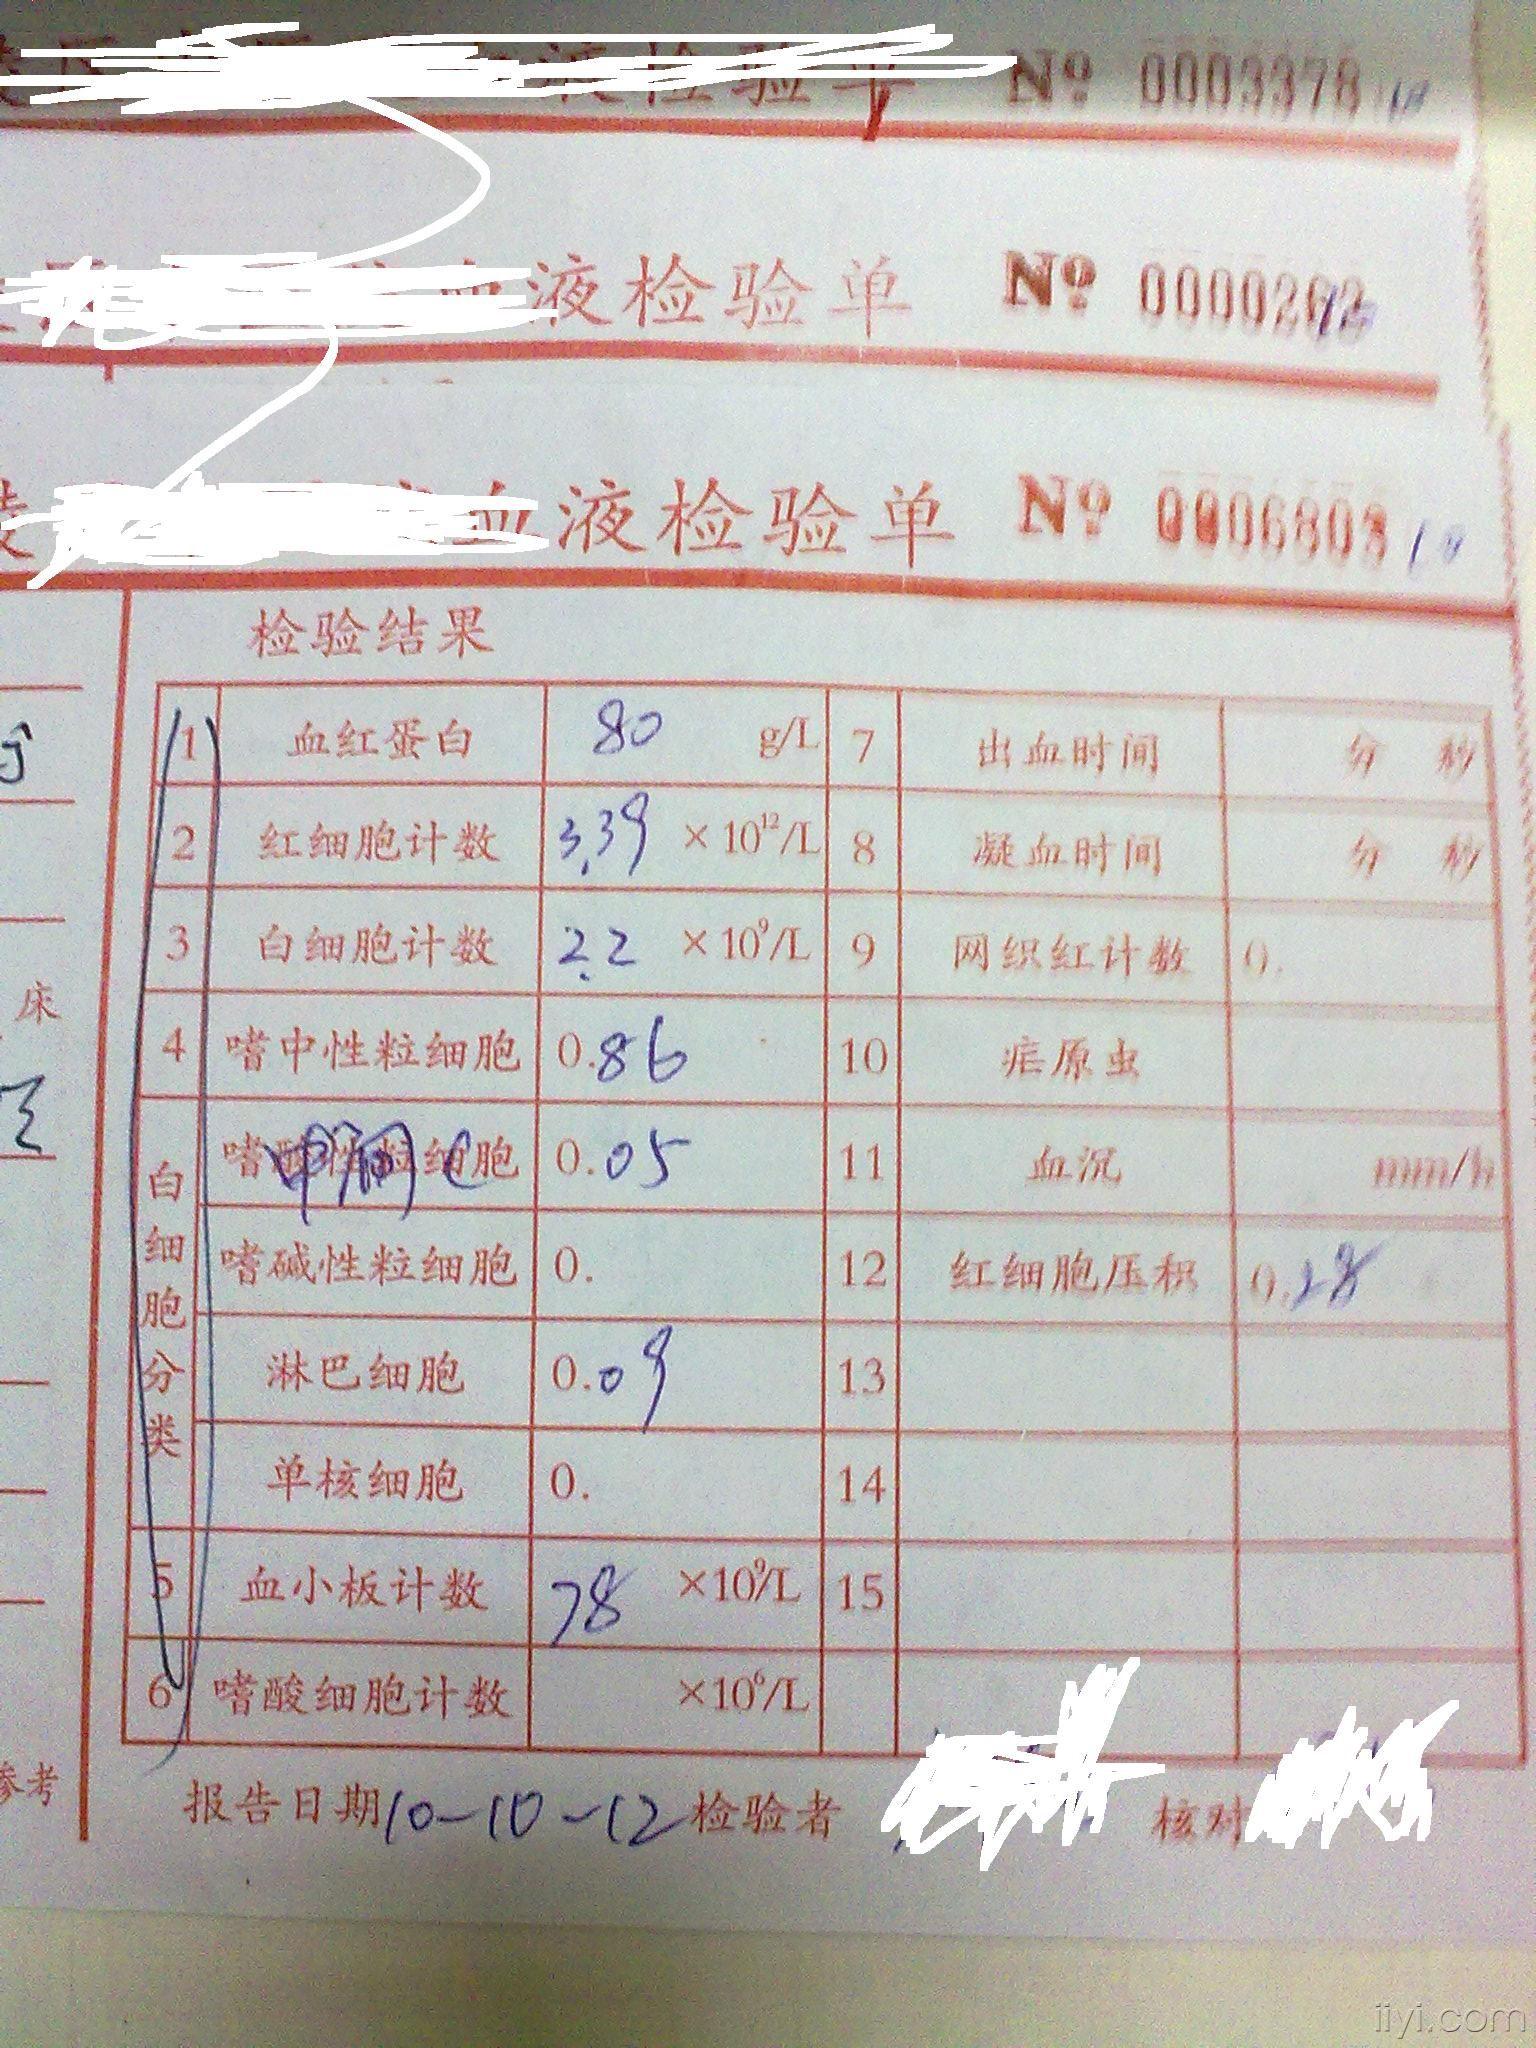 液检验单 Nº 0003378
血液检验单 Nº 0000262
血液检验单 Nº 0006803
检验结果
1 血红蛋白 80 g/L 7 出血时间 分 秒
2 红细胞计数 3.39 ×10¹²/L 8 凝血时间 分 秒
3 白细胞计数 2.2 ×10⁹/L 9 网织红计数 0.
床
4 嗜中性粒细胞 0.86 10 疟原虫
白细胞分类
嗜酸性粒细胞 中间C 0.05 11 血沉 mm/h
嗜碱性粒细胞 0. 12 红细胞压积 0.28
淋巴细胞 0.09 13
单核细胞 0. 14
5 血小板计数 78 ×10⁹/L 15
6 嗜酸细胞计数 ×10⁶/L
参考
报告日期 10-10-12 检验者 核对
iiyi.com